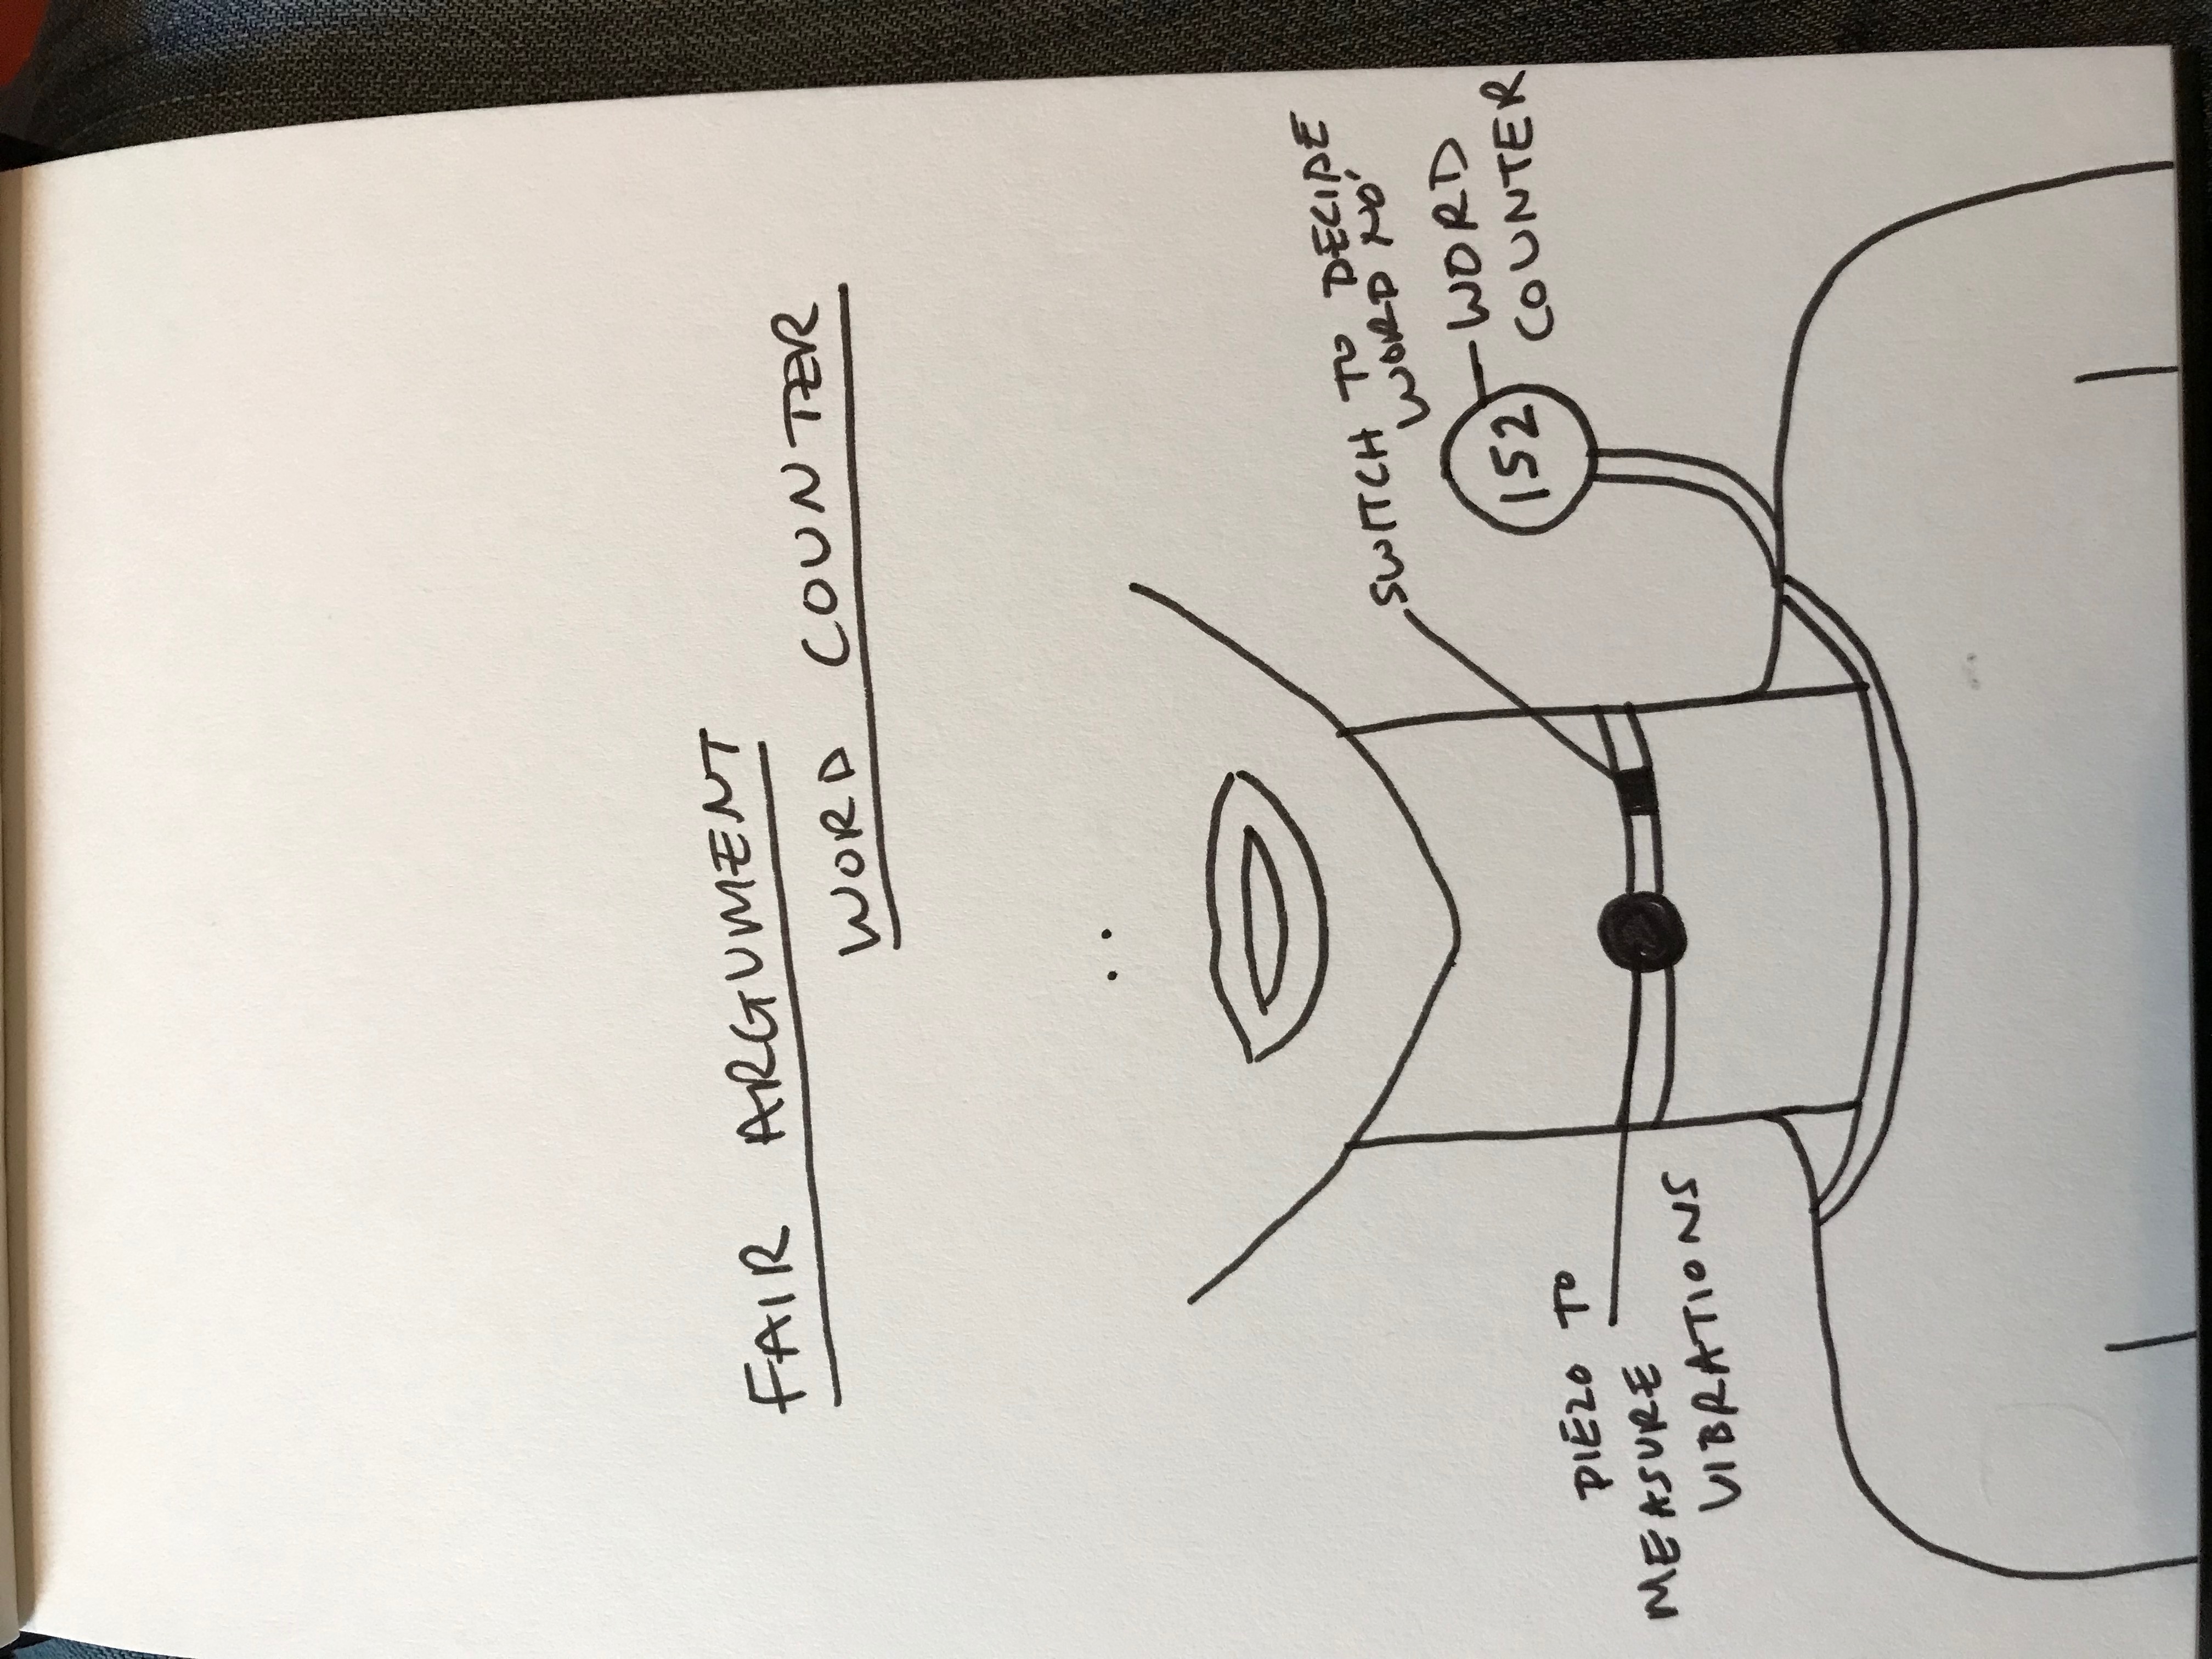 FAIR ARGUMENT
WORD COUNTER
SWITCH TO DECIDE
WORD NO.
152
WORD
COUNTER
PIEZO TO
MEASURE
VIBRATIONS